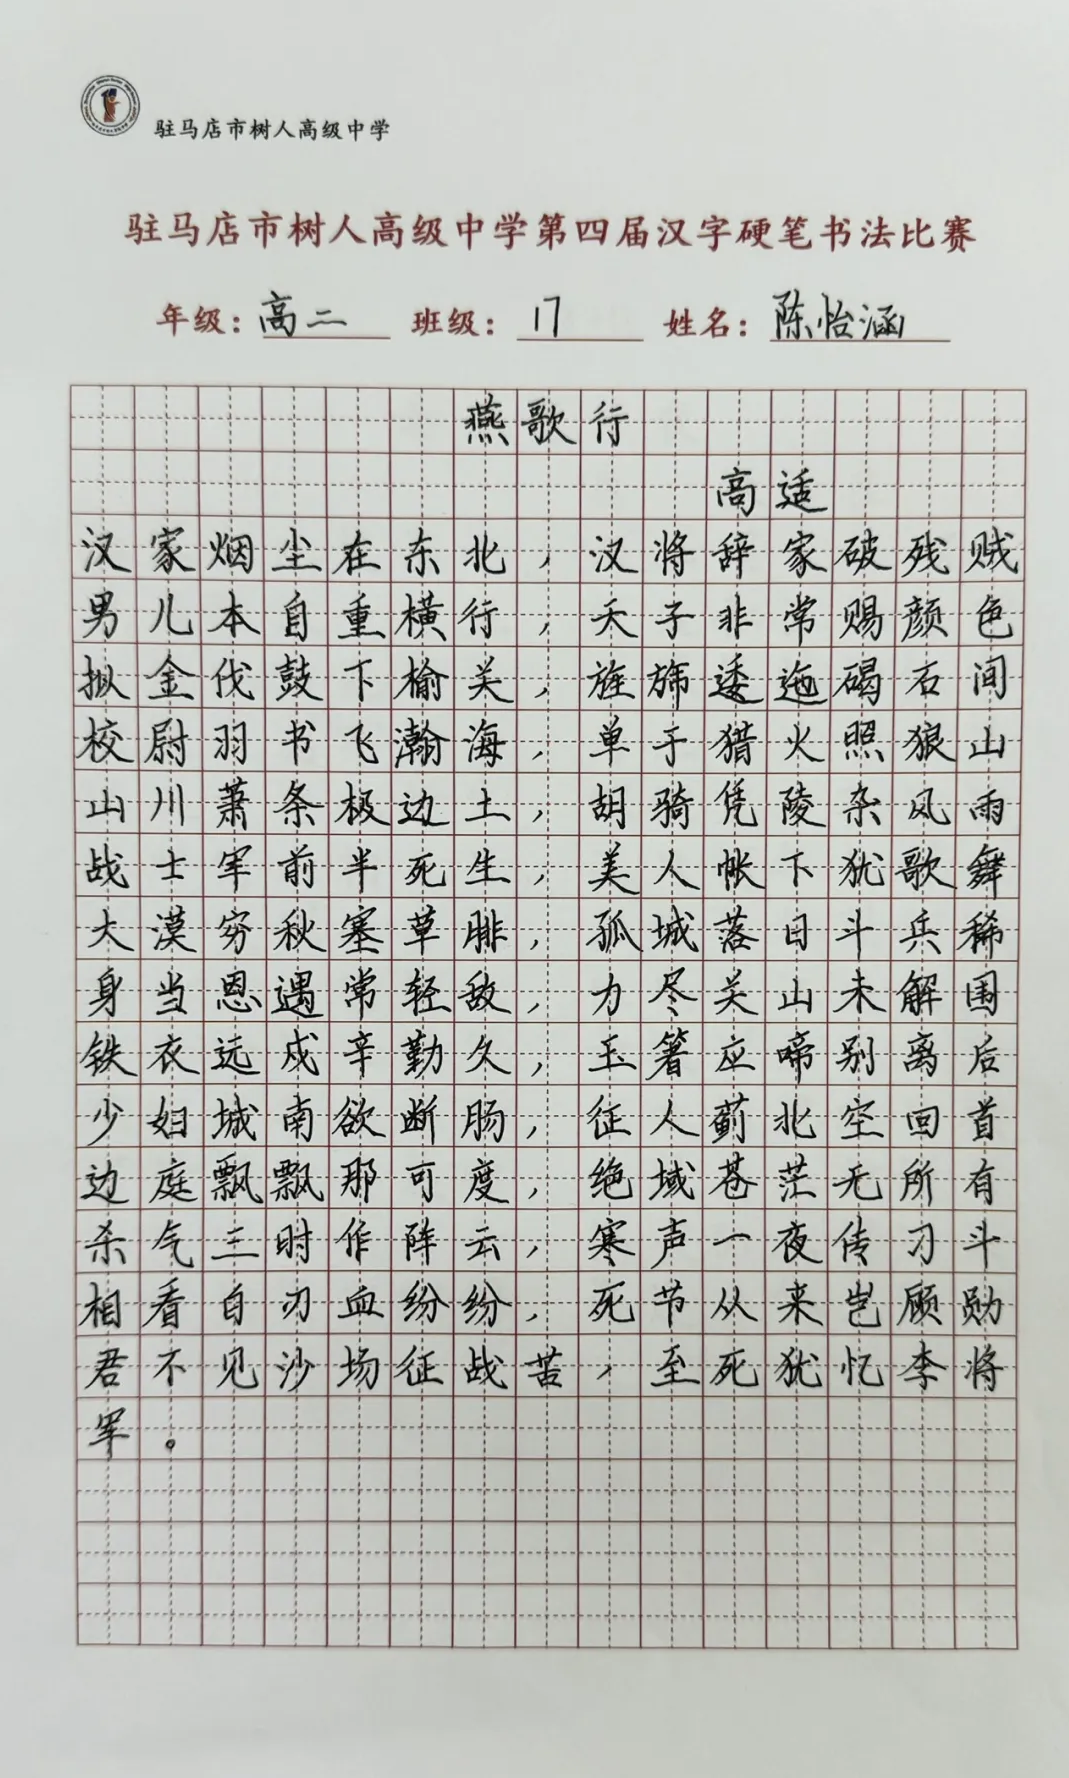 驻马店市树人高级中学
驻马店市树人高级中学第四届汉字硬笔书法比赛
年级：高二 班级：17 姓名：陈怡涵
燕歌行
高适
汉家烟尘在东北，汉将辞家破残贼
男儿本自重横行，天子非常赐颜色
拟金伐鼓下榆关，旌旆逶迤碣石间
校尉羽书飞瀚海，单于猎火照狼山
山川萧条极边土，胡骑凭陵杂风雨
战士军前半死生，美人帐下犹歌舞
大漠穷秋塞草腓，孤城落日斗兵稀
身当恩遇常轻敌，力尽关山未解围
铁衣远戍辛勤久，玉箸应啼别离后
少妇城南欲断肠，征人蓟北空回首
边庭飘飘那可度，绝域苍茫无所有
杀气三时作阵云，寒声一夜传刁斗
相看白刃血纷纷，死节从来岂顾勋
君不见沙场征战苦，至死犹忆李将
军。